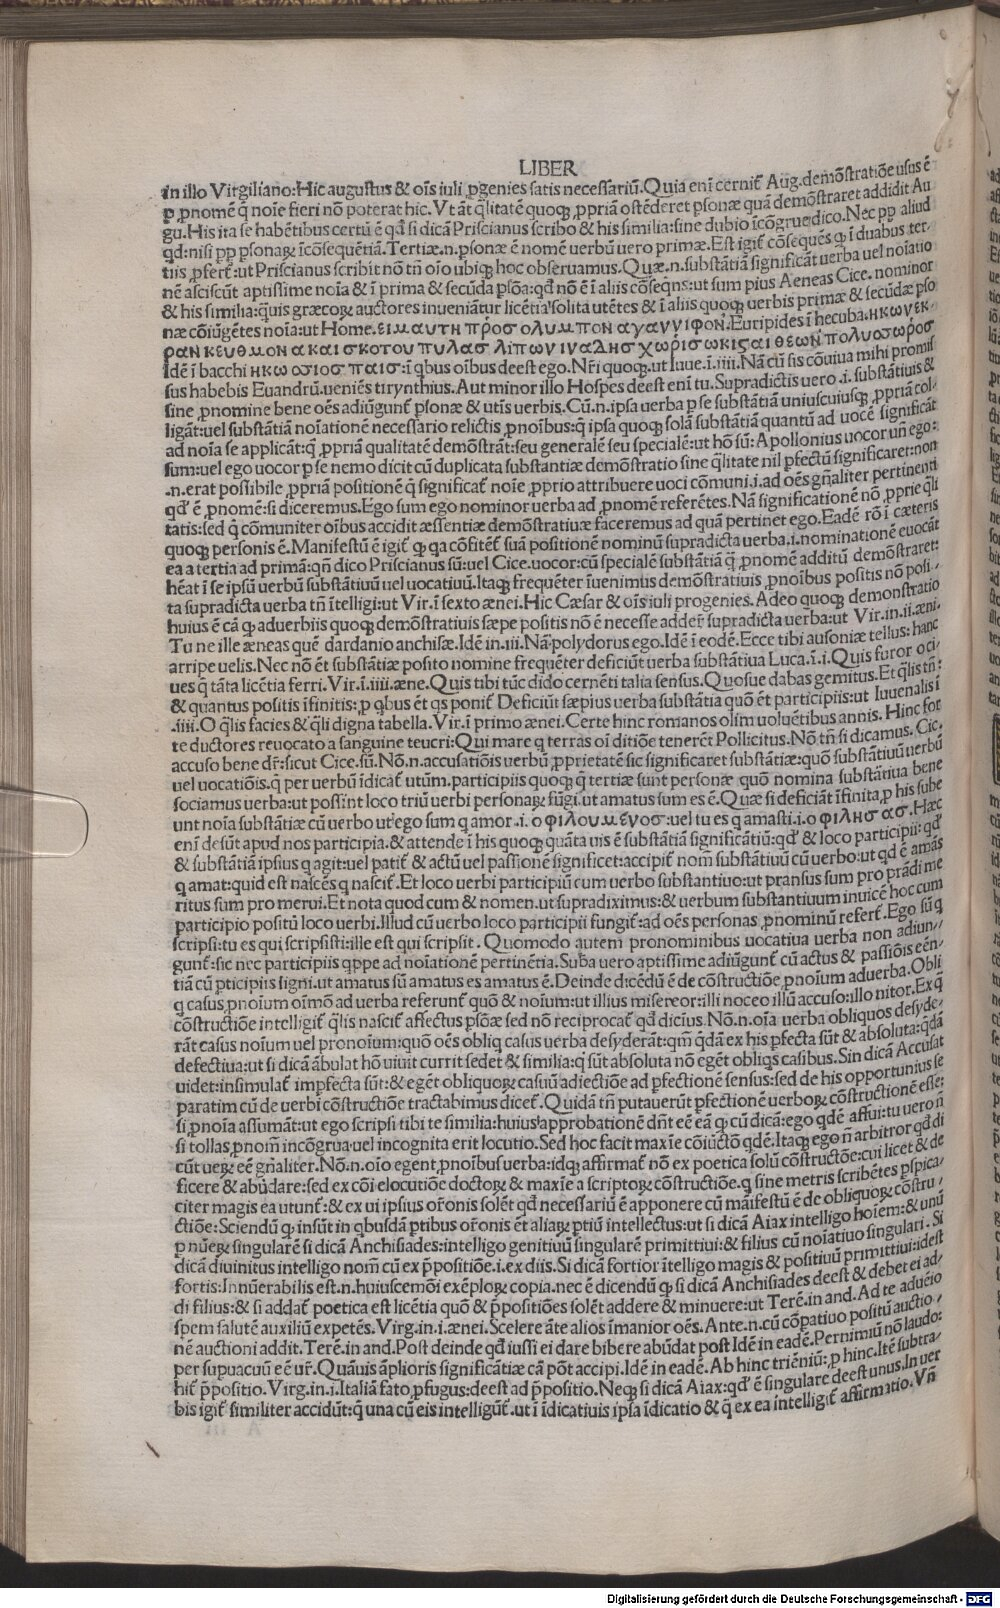 LIBER
in illo Virgiliano:Hic augustus & oīs iuli ꝓgenies satis necessariū.Quia enī cernit̄ Aug.demōstratiōe usus ē
ꝑ ꝓnomē q̄ noīe fieri nō poterat hic.Vt āt q̄litatē quoqꝫ ꝓpriā ostēderet ꝑsonæ quā demōstraret addidit Au
gu.His ita se habētibus certū ē qd̄ si dicā Priscianus scribo & his similia:sine dubio īcōgrue dico.Nec ꝓꝑ aliud
qd:nisi ꝓꝑ ꝑsonaꝝ īcōsequētiā.Tertiæ.n.ꝑsonæ ē nomē uerbū uero primæ.Est igit̄ cōsequēs ꝙ ī duabus ter-
tiis ꝓfert̄.ut Priscianus scribit nō tn̄ oīo ubiqꝫ hoc obseruamus.Quæ.n.substātiā significāt uerba uel noīatio
nē asciscūt aptissime noīa & ī prima & secūda ꝑsōa:qd̄ nō ē ī aliis cōseqns:ut sum pius Aeneas Cice.nominor
& his similia:q̄uis græcoꝝ auctores inueniātur licētia solita utētes & ī aliis quoqꝫ uerbis primæ & secūdæ ꝑso
næ cōiūgētes noīa:ut Home.ειμ αυτη προσ ολυμπον αγαννιφον.Euripides ī hecuba:ηκω νεκ-
ραν κευθμονα και σκοτου πυλασ λιπων ιν αδησ χωρισ ωκισαι θεων πολυσωροσ
Idē ī bacchi ηκω σσιοσ παισ:ī q̄bus oībus deest ego.Nr̄i quoqꝫ.ut Iuue.ī.iiii.Nā cū sis cōuiua mihi promis
sus habebis Euandrū.ueniēs tirynthius.Aut minor illo Hospes deest enī tu.Supradictis uero.i.substātiuis &
sine ꝓnomine bene oēs adiūgunt̄ ꝑsonæ & utīs uerbis.Cū.n.ipsa uerba ꝑ se substātiā uniuscuiusqꝫ ꝓpriā col-
ligāt:uel substātiā noīationē necessario relictis ꝓnoībus:q̄ ipsa quoqꝫ solā substātiā quantū ad uocē significāt
ad noīa se applicāt:q̄ ꝓpriā qualitatē demōstrāt:seu generalē seu specialē:ut hō sū:Apollonius uocor un̄ ego:
sum:uel ego uocor ꝑ se nemo dicit cū duplicata substantiæ demōstratio sine q̄litate nil ꝑfectū significaret:non
.n.erat possibile ꝓpriā positionē q̄ significat̄ noīe ꝓprio attribuere uoci cōmuni.i.ad oēs gn̄aliter pertinenti
qd̄ ē ꝓnomē:si diceremus.Ego sum ego nominor uerba ad ꝓnomē referētes.Nā significationē nō ꝓprie q̄li
tatis:sed q̄ cōmuniter oībus accidit æssentiæ demōstratiuæ faceremus ad quā pertinet ego.Eadē rō ī cæteris
quoqꝫ personis ē.Manifestū ē igit̄ ꝙ qa cōfitēt̄ suā positionē nominū supradicta uerba.i.nominationē euocāt
ea a tertia ad primā:qn̄ dico Priscianus sū:uel Cice.uocor:cū specialē substātiā q̄ ꝓnomē additū demōstraret:
hēāt ī se ipsū uerbū substātiuū uel uocatiuū.Itaqꝫ frequēter īuenimus demōstratiuis ꝓnoībus positis nō posi-
ta supradicta uerba tn̄ ītelligi:ut Vir.ī sexto ænei.Hic Cæsar & oīs iuli progenies.Adeo quoqꝫ demonstratio
huius ē cā ꝙ aduerbiis quoqꝫ demōstratiuis sæpe positis nō ē necesse adder̄ supradicta uerba:ut Vir.in.ii.æni.
Tu ne ille æneas quē dardanio anchisæ.Idē in.iii.Nā polydorus ego.Idē ī eodē.Ecce tibi ausoniæ tellus:hanc
arripe uelis.Nec nō ēt substātiæ posito nomine frequēter deficiūt uerba substātiua Luca.ī.i.Quis furor o ci-
ues q̄ tāta licētia ferri.Vir.ī.iiii.æne.Quis tibi tūc dido cernēti talia sensus.Quosue dabas gemitus.Et q̄lis tn̄:
& quantus positis īfinitis:ꝑ q̄bus ēt qs ponit̄ Deficiūt sæpius uerba substātia quō ēt participiis:ut Iuuenalis ī
.iiii.O q̄lis facies & q̄li digna tabella.Vir.ī primo ænei.Certe hinc romanos olim uoluētibus annis.Hinc for
te ductores reuocato a sanguine teucri:Qui mare q terras oī ditiōe tenerēt Pollicitus.Nō tn̄ si dicamus.Cic.
accuso bene dr̄:sicut Cice.sū.Nō.n.accusatiōis uerbū ꝓprietatē sic significaret substātiæ:quō substātiuū uerbū
uel uocatiōis.q̄ per uerbū īdicat̄ utūm.participiis quoqꝫ q̄ tertiæ sunt personæ quō nomina substātiua bene
sociamus uerba:ut possīnt loco triū uerbi personaꝝ fūgi.ut amatus sum es ē.Quæ si deficiāt īfinita ꝑ his sube
unt noīa substātiæ cū uerbo ut ego sum q amor.i.ο φιλουμενοσ:uel tu es q amasti.i.ο φιλησασ.Hæc
enī desūt apud nos participia.& attende ī his quoqꝫ quāta uis ē substātiā significātiū:qd̄ & loco participii:qd̄
& substātiā ipsius q agit:uel patit̄ & actū uel passionē significet:accipit̄ nom̄ substātiuū cū uerbo:ut qd ē amās
q amat:quid est nascēs q nascit̄.Et loco uerbi participiū cum uerbo substantiuo:ut pransus sum pro prādi me
ritus sum pro merui.Et nota quod cum & nomen.ut supradiximus:& uerbum substantiuum inuicē hoc cum
participio positū loco uerbi.Illud cū uerbo loco participii fungit̄:ad oēs personas ꝓnominū refert̄.Ego sū q
scripsi:tu es qui scripsisti:ille est qui scripsit.Quomodo autem pronominibus uocatiua uerba non adiun-
gunt̄:sic nec participiis qppe ad noīationē pertinētia.Suba uero aptissime adiūgunt̄ cū actus & passiōis eēn-
tiā cū ꝑticipiis signi.ut amatus sū amatus es amatus ē.Deinde dicēdū ē de cōstructiōe ꝓnoīum ad uerba.Obli
q casus ꝓnoīum oīmō ad uerba referunt̄ quō & noīum:ut illius misereor:illi noceo illū accuso:illo nitor.Ex q̄
cōstructiōe intelligit̄ q̄lis nascit̄ affectus ꝑsōæ sed nō reciprocat̄ qd̄ dicīus.Nō.n.oīa uerba obliquos desyde-
rāt casus noīum uel pronoīum:quō oēs obliq casus uerba desyderāt:qm̄ q̄dā ex his ꝑfecta sūt & absoluta:q̄dā
defectiua:ut si dicā ābulat hō uiuit currit sedet & similia:q̄ sūt absoluta nō egēt obliqs casibus.Sin dicā Accusat
uidet:insimulat̄ impfecta sūt:& egēt obliquoꝝ casuū adiectiōe ad ꝑfectionē sensus:sed de his opportunius se
paratim cū de uerbi cōstructiōe tractabimus dicet̄.Quidā tn̄ putauerūt ꝑfectionē uerboꝝ cōstructionē esse:
si ꝓnoīa assumāt:ut ego scripsi tibi te similia:huius approbationē dn̄t eē eā ꝙ cū dicā:ego qdē affui:tu uero n̄
si tollas ꝓnom̄ incōgrua uel incognita erit locutio.Sed hoc facit maxīe cōiūctō qdē.Itaqꝫ ego n̄ arbitror qd̄ di
cūt ueꝝ eē gn̄aliter.Nō.n.oīo egent ꝓnoībus uerba:idqꝫ affirmat̄ nō ex poetica solū cōstructōe:cui licet & de
ficere & abūdare:sed ex cōi elocutiōe doctoꝝ & maxīe a scriptoꝝ cōstructiōe.q sine metris scribētes ꝑspica-
citer magis ea utunt̄:& ex ui ipsius or̄onis solēt qd̄ necessariū ē apponere cū māifestū ē de obliquoꝝ cōstru-
ctiōe:Sciendū ꝙ insūt in qbusdā ꝑtibus or̄onis ēt aliaꝝ ꝑtiū intellectus:ut si dicā Aiax intelligo hoīem:& unū
ꝑ nūeꝝ singularē si dicā Anchisiades:intelligo genitiuū singularē primittiui:& filius cū noīatiuo singulari.Si
dicā diuinitus intelligo nom̄ cū ex p̄positiōe.i.ex diis.Si dicā fortior ītelligo magis & positiuū primittiui:idest
fortis:Innūerabilis est.n.huiuscemōi exēploꝝ copia.nec ē dicendū ꝙ si dicā Anchisiades deest & debet ei ad-
di filius:& si addat̄ poetica est licētia quō & p̄positiōes solēt addere & minuere:ut Terē.in and.Ad te aduēio
spem salutē auxiliū expetēs.Virg.in.i.ænei.Scelere āte alios īmanior oēs.Ante.n.cū cōpatiuo positū auctio-
nē auctioni addit.Terē.in and.Post deinde qd̄ iussi ei dare bibere abūdat post Idē in eadē.Pernimiū nō laudo:
per supuacuū eē ur̄.Quāuis āplioris significātiæ cā pōt accipi.Idē in eadē.Ab hinc triēniū:ꝓ hinc.Itē subtra-
hit̄ p̄positio.Virg.in.i.Italiā fato ꝓfugus:deest ad p̄positio.Neqꝫ si dicā Aiax:qd̄ ē singulare deest unus.In uer
bis igit̄ similiter accidūt:q̄ una cū eis intelligūt̄.ut ī īdicatiuis ipsa īdicatio & q̄ ex ea intelligit̄ affirmatio.Vn̄
Digitalisierung gefördert durch die Deutsche Forschungsgemeinschaft - DFG